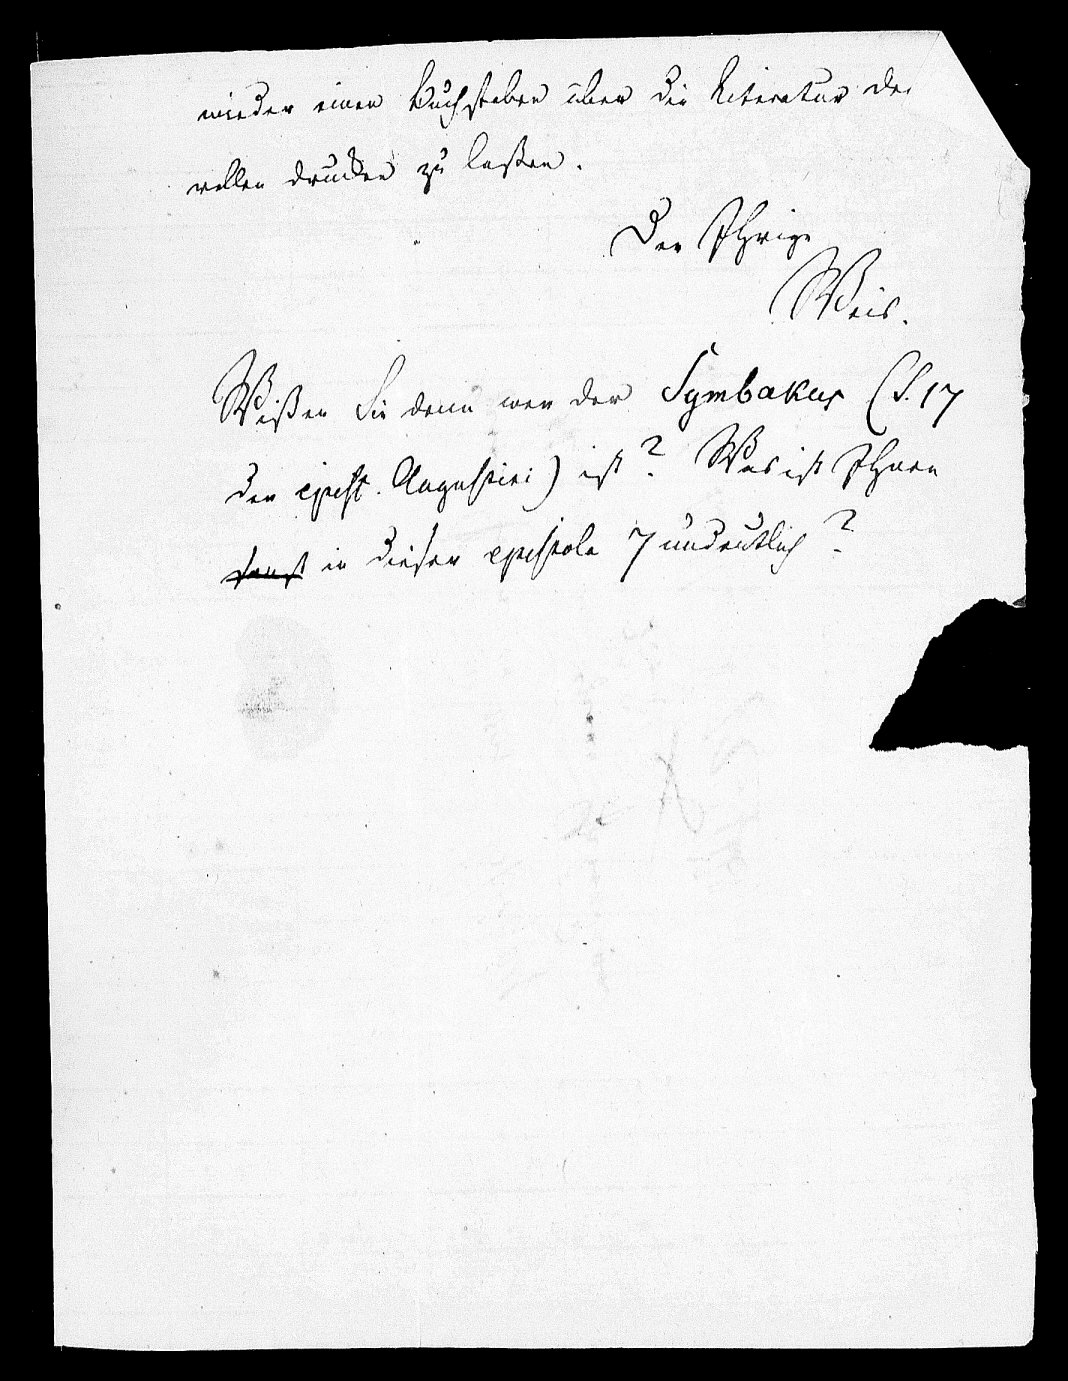 wieder einen Buchstaben über die Literatur der
vollen drucken zu laßen.
Der Ihrige
Weis.
Wißen Sie denn wer der Symbakus (S. 17
der epist. Augustini) ist? Was ist Ihnen
sonst in dieser epistola 7 undeutlich?